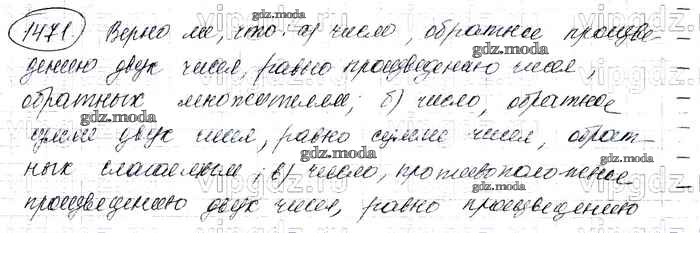 1471. Верно ли, что: а) число, обратное произве-
дению двух чисел, равно произведению чисел,
обратных множителям; б) число, обратное
сумме двух чисел, равно сумме чисел, обрат-
ных слагаемым; в) число, противоположное
произведению двух чисел, равно произведению
gdz.moda
vipgdz.ru